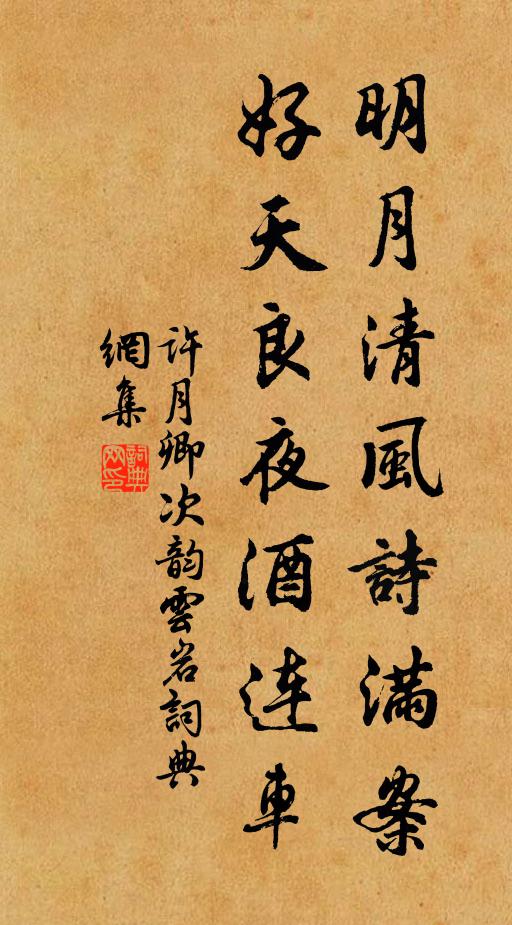 明月清風詩滿案
好天良夜酒連車
許月卿次韵雲岩詞典
網集
詞典
网印